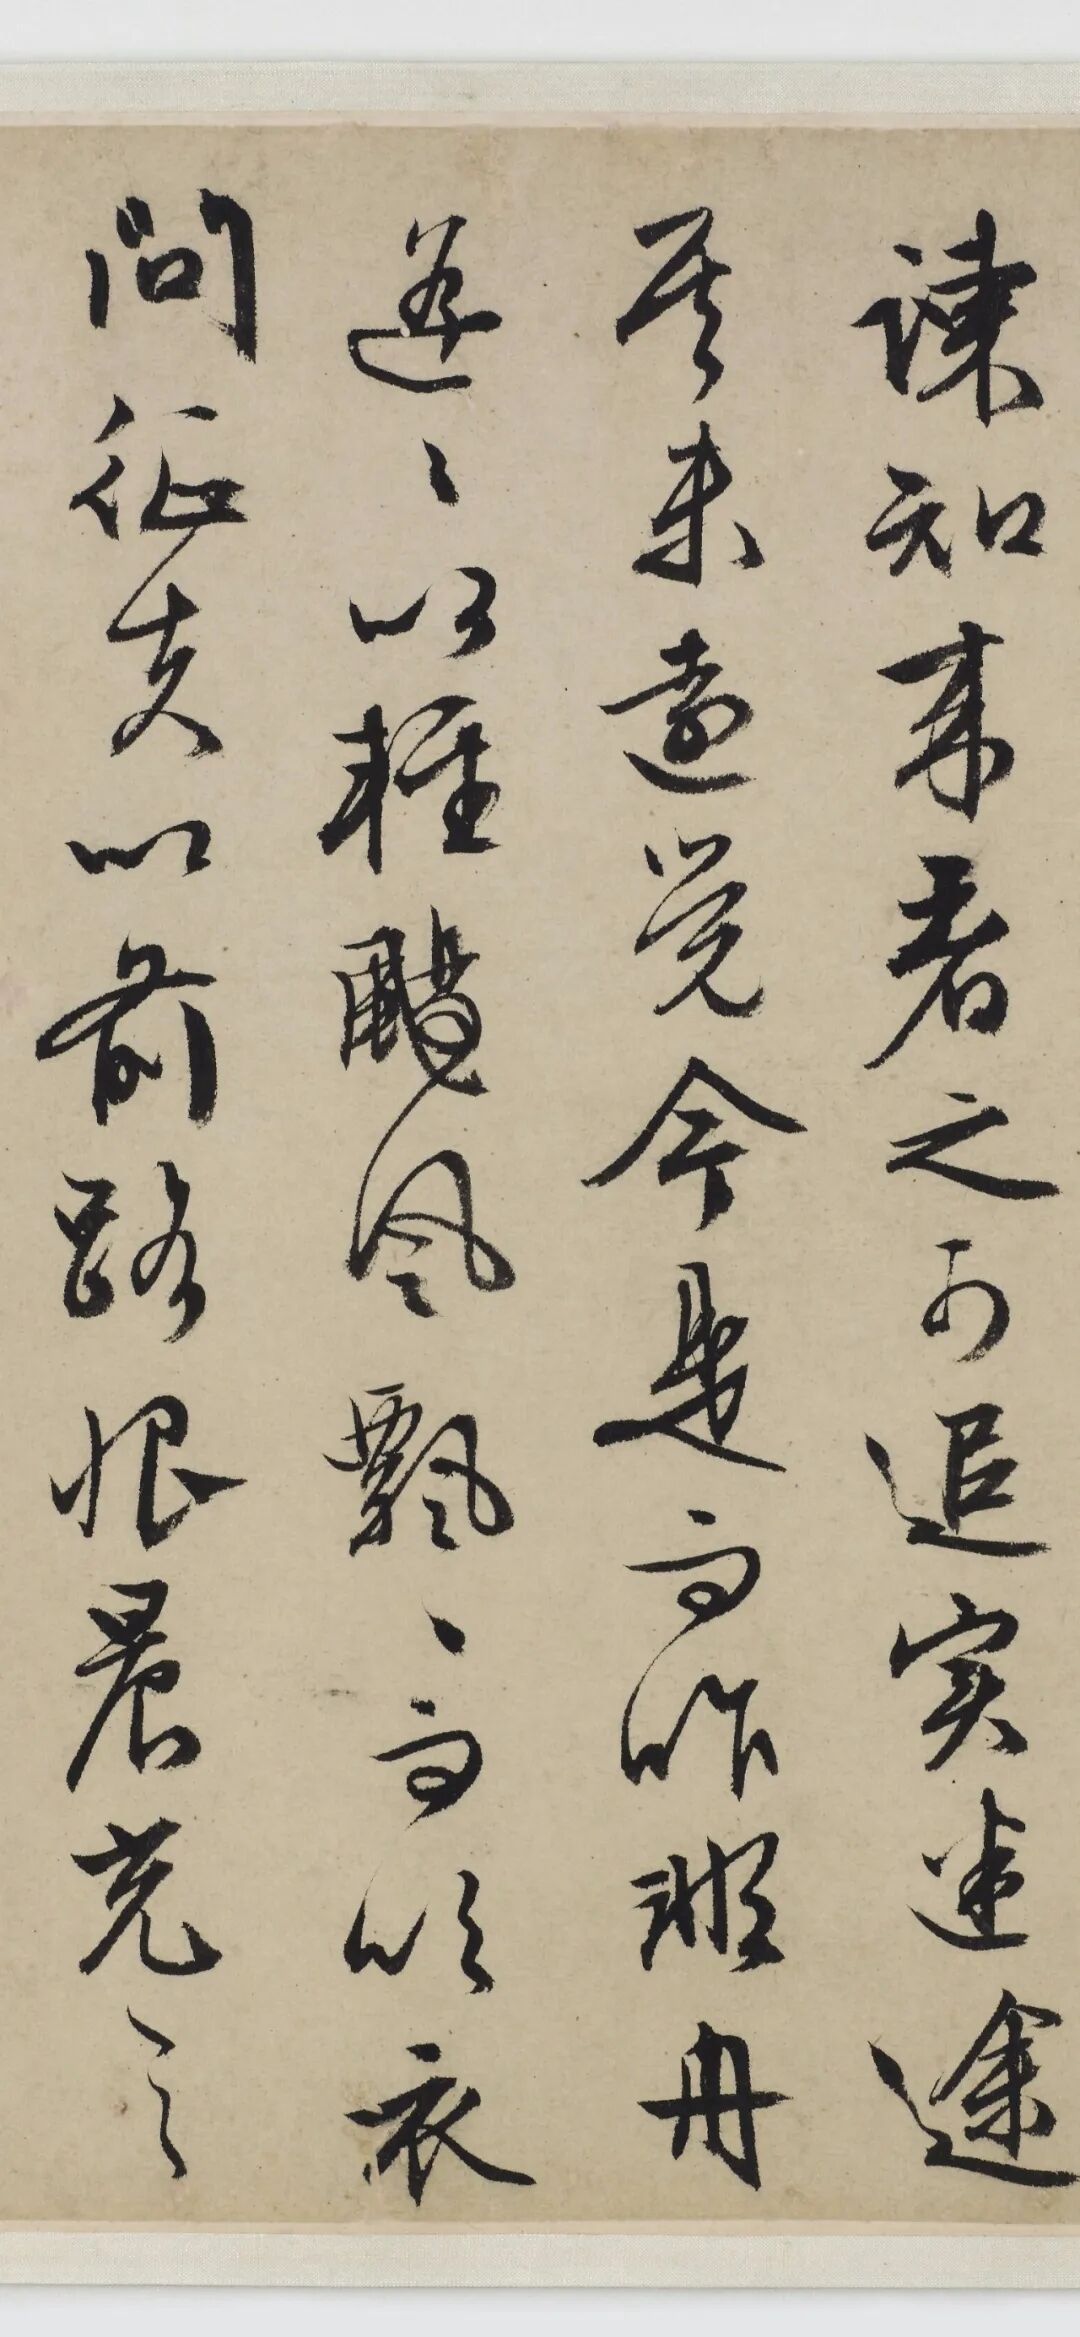 諫知来者之可追实迷途
其未遠觉今是而昨非舟
遥〻以輕颺風飄〻而吹衣
問征夫以前路恨晨光之